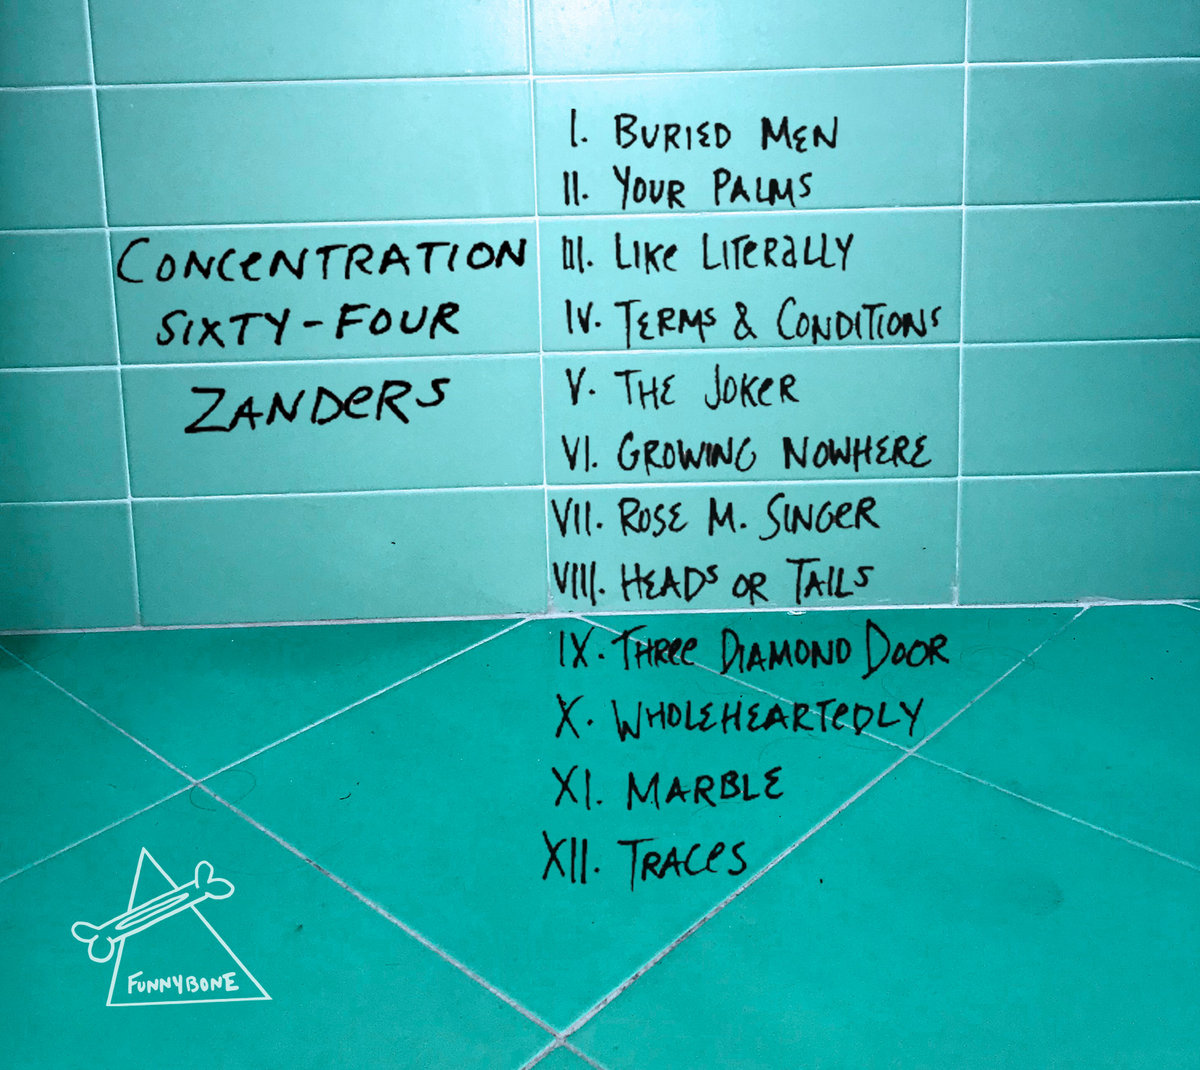 CONCENTRATION
SIXTY-FOUR
ZANDERS
I. BURIED MEN
II. YOUR PALMS
III. LIKE LITERALLY
IV. TERMS & CONDITIONS
V. THE JOKER
VI. GROWING NOWHERE
VII. ROSE M. SINGER
VIII. HEADS OR TAILS
IX. THREE DIAMOND DOOR
X. WHOLEHEARTEDLY
XI. MARBLE
XII. TRACES
FUNNYBONE